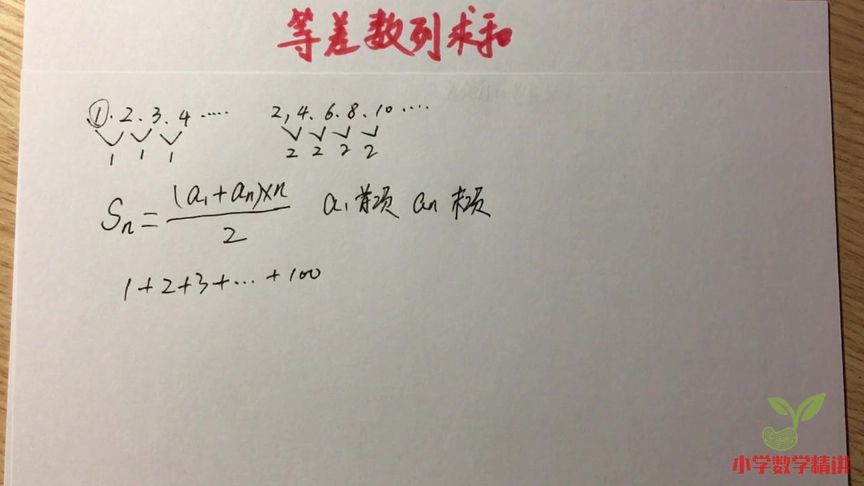 等差数列求和
①.2.3.4.....   2,4.6.8.10....
1 1 1   2 2 2 2
Sn=(a₁+an)×n/2   a₁首项 an 末项
1+2+3+...+100
小学数学精讲